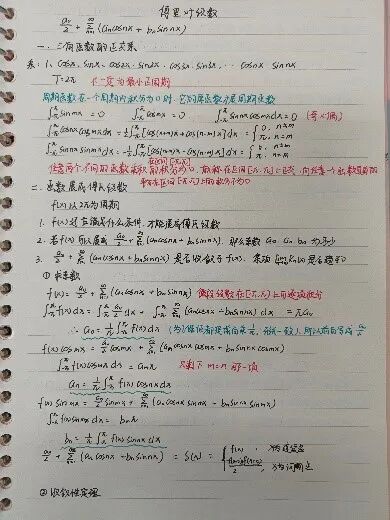 傅里叶级数
a₀/2 + ∑(n=1→∞)(aₙcosnx + bₙsinnx)
一. 三角函数的正交关系
1. cosx, sinx, cos2x, sin2x, cos3x, sin3x, ··· cosnx, sinnx
T=2π 不一定为最小正周期
周期函数在一个周期内积分为0时, 它的原函数才是周期函数
∫₋π^π sinnx = 0 ∫₋π^π cosnx = 0 ∫₋π^π sinnx cosmx dx = 0
∫₋π^π cosnx cosmx dx = ½∫₋π^π [cos(n+m)x + cos(n-m)x] dx = { 0, n≠m
π, n=m
∫₋π^π sinnx sinmx dx = -½∫₋π^π [cos(n+m)x - cos(n-m)x] dx = { 0, n≠m
π, n=m
任意两个不同的函数乘积
在区间[-π,π]
平方在区间[-π,π]上的积分不为0
二. 函数展成傅氏级数
f(x)以2π为周期
1. f(x)满足什么条件, 才能展成傅氏级数
2. 若f(x)可以展成 a₀/2 + ∑(n=1→∞)(aₙcosnx + bₙsinnx), 那么系数 a₀ aₙ bₙ 为多少
3. a₀/2 + ∑(n=1→∞)(aₙcosnx + bₙsinnx) 是否收敛于f(x)
① 求系数
f(x) = a₀/2 + ∑(n=1→∞)(aₙcosnx + bₙsinnx) 假设级数在[-π,π]上可逐项积分
∫₋π^π f(x)dx = ∫₋π^π a₀/2 dx + ∫₋π^π ∑(n=1→∞)(aₙcosnx + bₙsinnx)dx = πa₀
∴ a₀ = 1/π ∫₋π^π f(x)dx
f(x)cosmx = a₀/2 cosmx + ∑(n=1→∞)(aₙcosnx cosmx + bₙsinnx cosmx)
∫₋π^π f(x)cosmx dx = aₙπ 只剩下 m=n 那一项
aₙ = 1/π ∫₋π^π f(x)cosnx dx
f(x)sinmx = a₀/2 sinmx + ∑(n=1→∞)(aₙcosnx sinmx + bₙsinnx sinmx)
∫₋π^π f(x)sinmx dx = bₙπ
bₙ = 1/π ∫₋π^π f(x)sinnx dx
a₀/2 + ∑(n=1→∞)(aₙcosnx + bₙsinnx) = S(x) = { f(x), x为连续点
x为间断点
② 收敛性定理